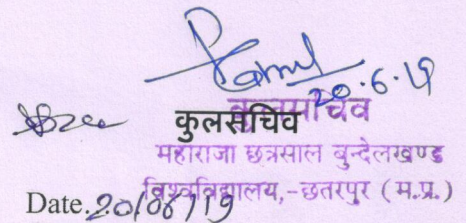 20.6.19
कुलसचिव
कुलसचिव
महाराजा छत्रसाल बुन्देलखण्ड
विश्वविद्यालय,-छतरपुर (म.प्र.)
Date.20/06/19